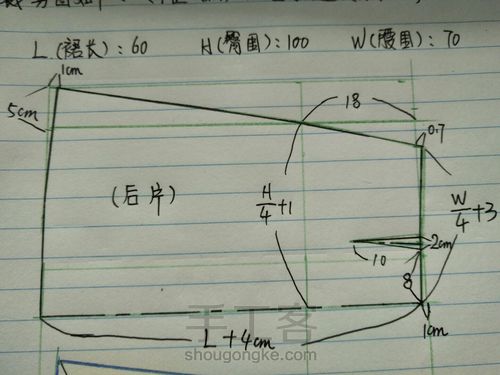 L(裙长):60 H(臀围):100 W(腰围):70
1cm
5cm
18
0.7
(后片)
H/4+1
W/4+3
2cm
10
8
1cm
L+4cm
手工客
shougongke.com